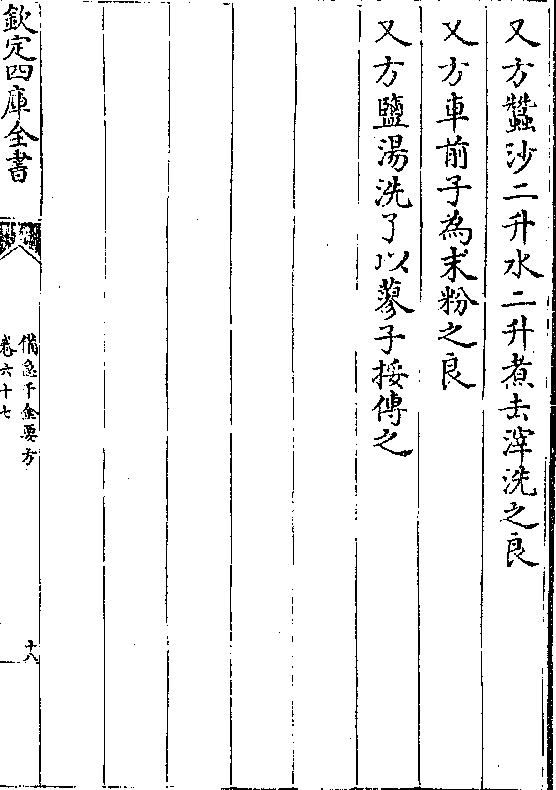 又方蠶沙二升水二升煮去滓洗之良
又方車前子為末粉之良
又方鹽湯洗了以蓼子挼傅之
欽定四庫全書
備急千金要方
卷六十七
十八